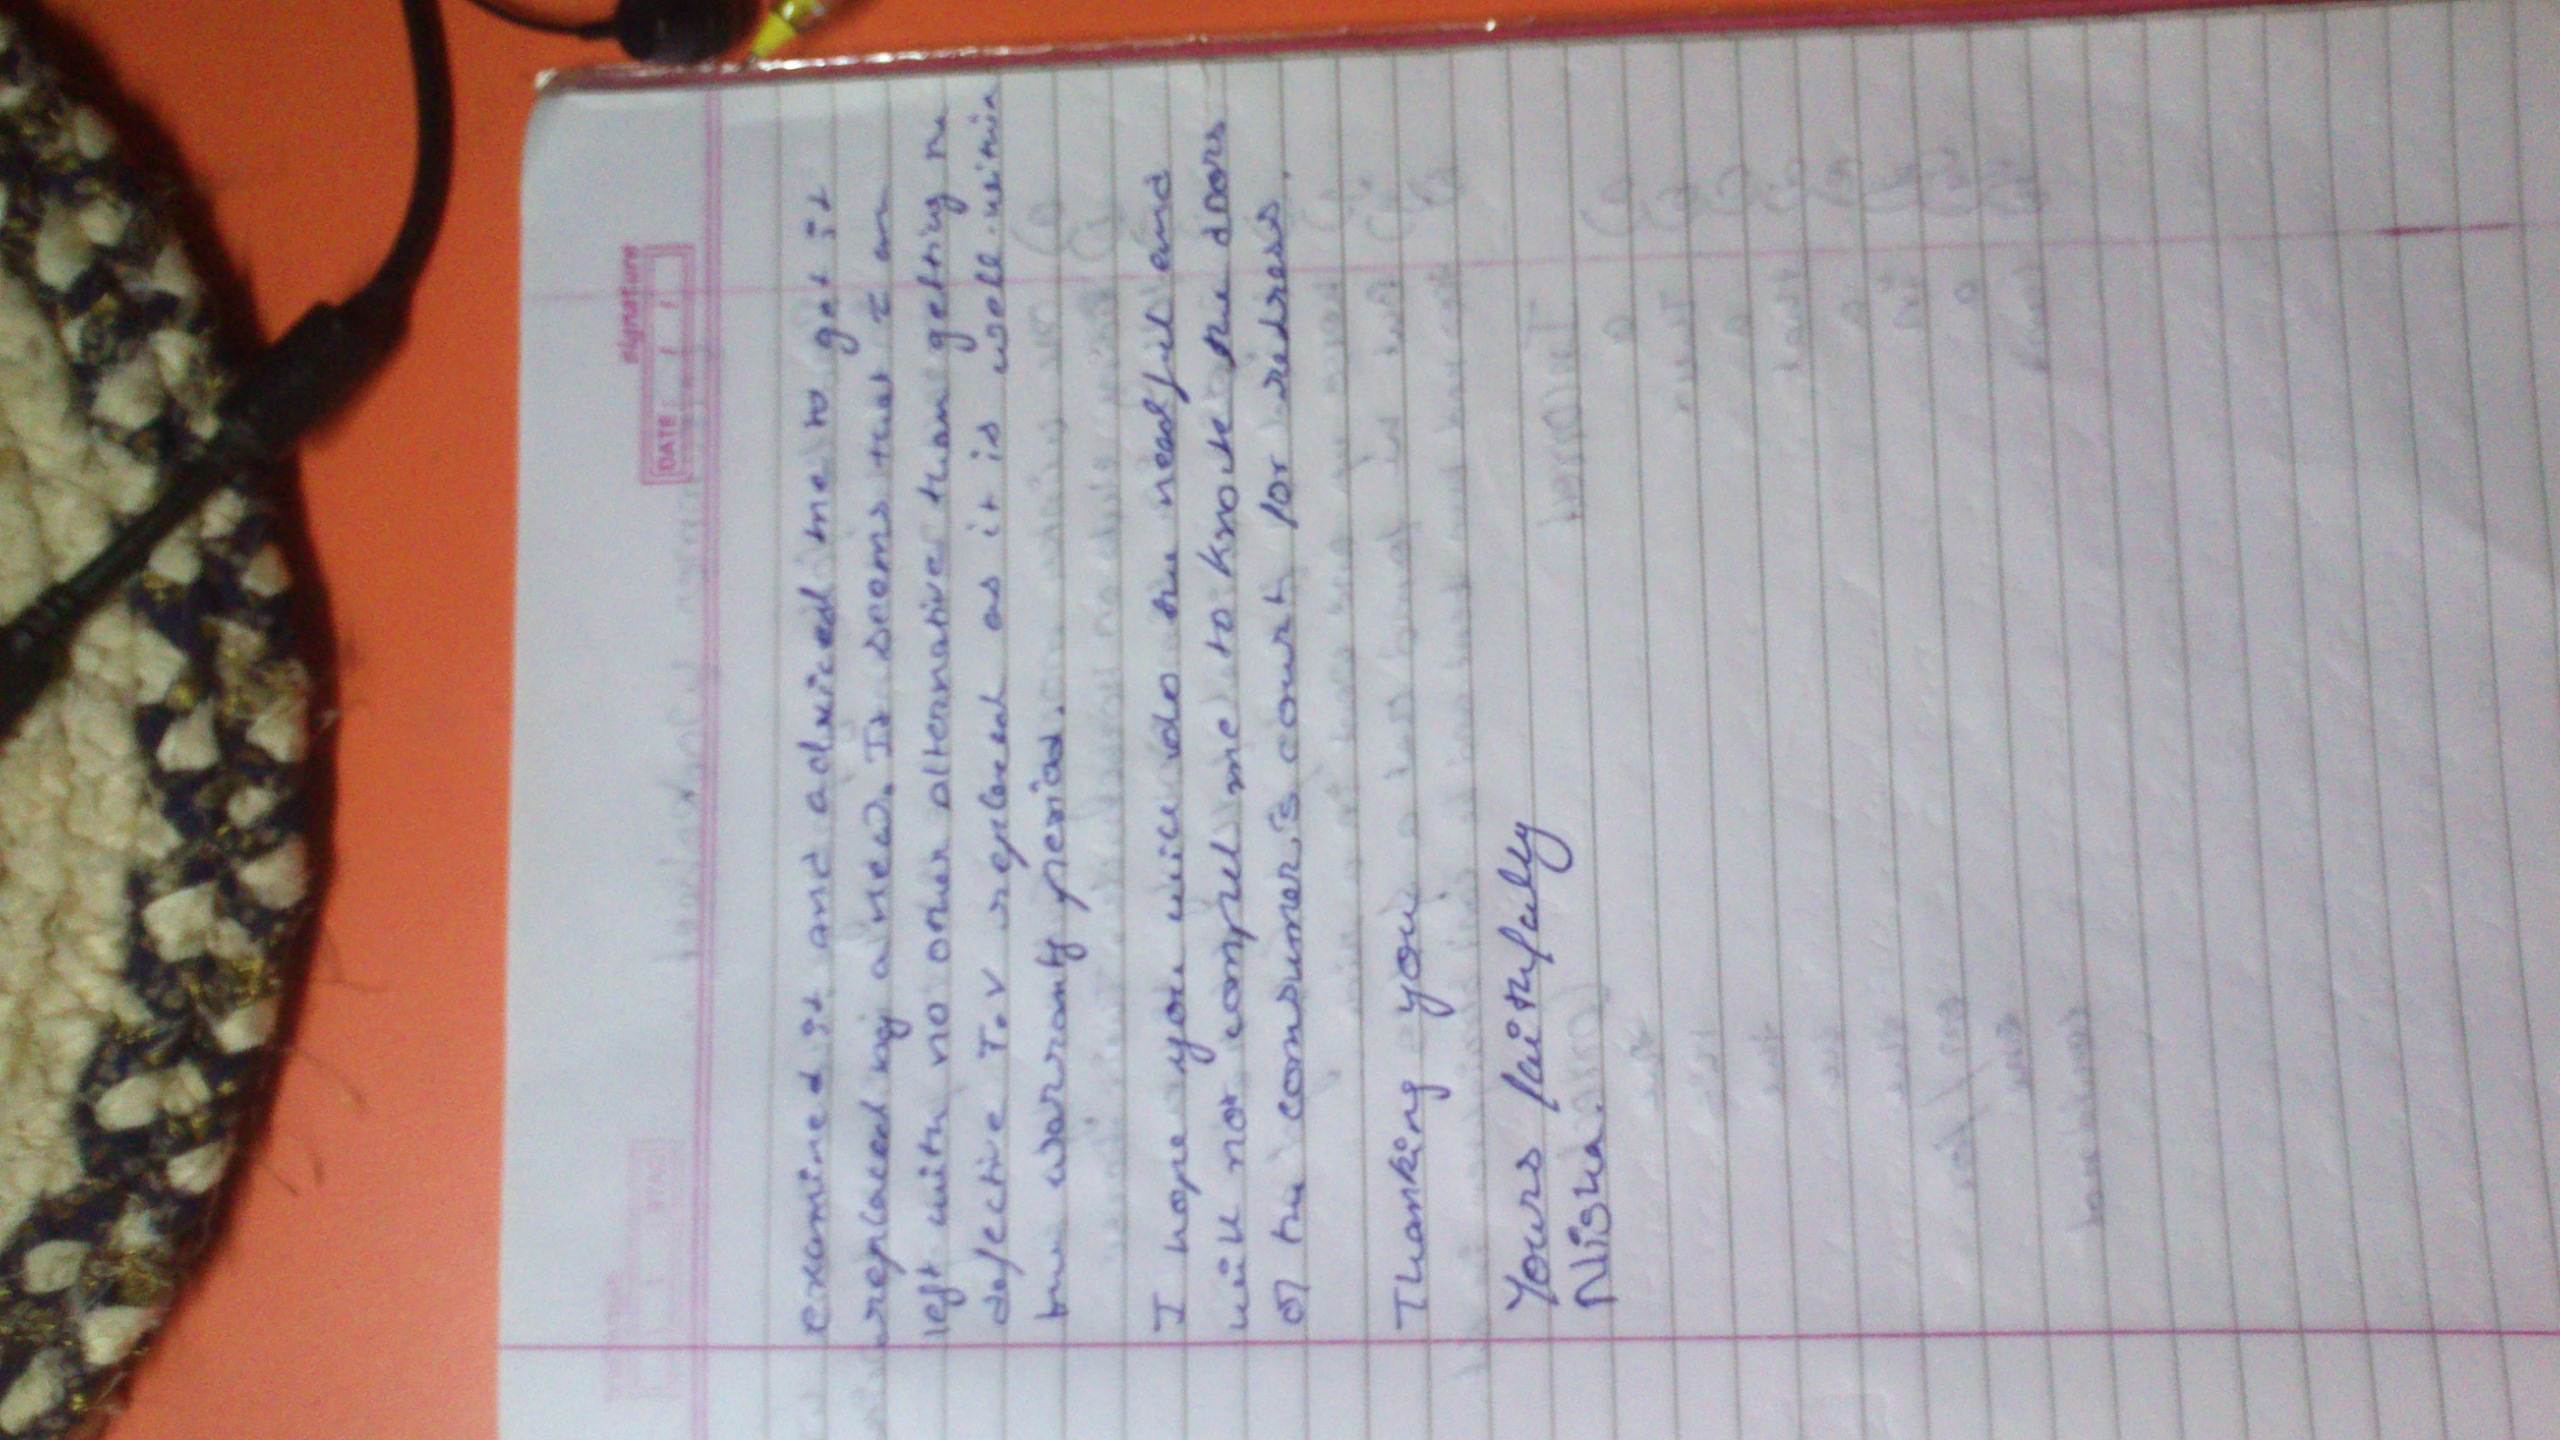 signature
DATE / /
examined it and adviced me to get it
replaced by a new. It seems that I am
left with no other alternative than getting the
defective T.V replaced as it is well within
the warranty period.
I hope you will do the needful and
will not compel me to knock the doors
of the comsumer's court for redress.
Thanking you
Yours faithfully
Nisha.